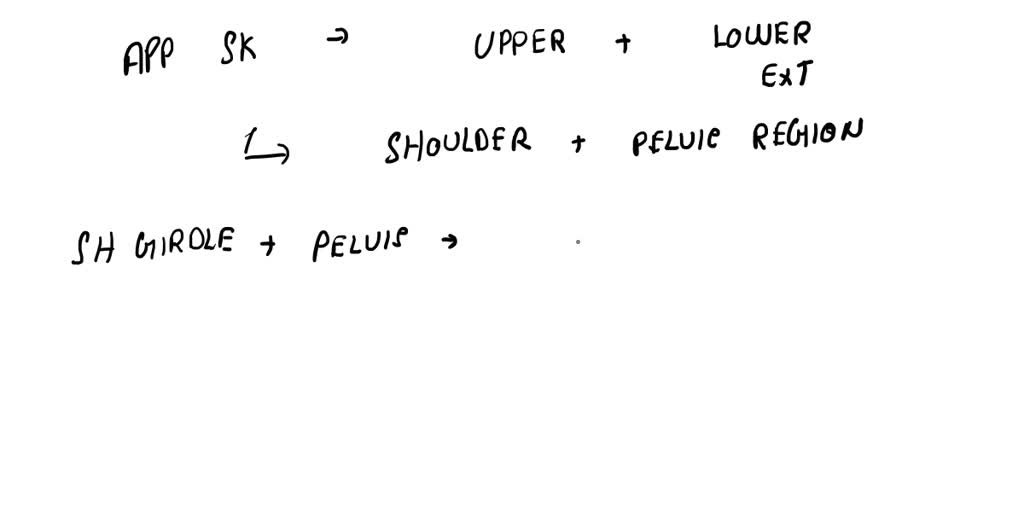 APP SK → UPPER + LOWER
EXT
↳ SHOULDER + PELVIC REGION
SH GIRDLE + PELVIS →